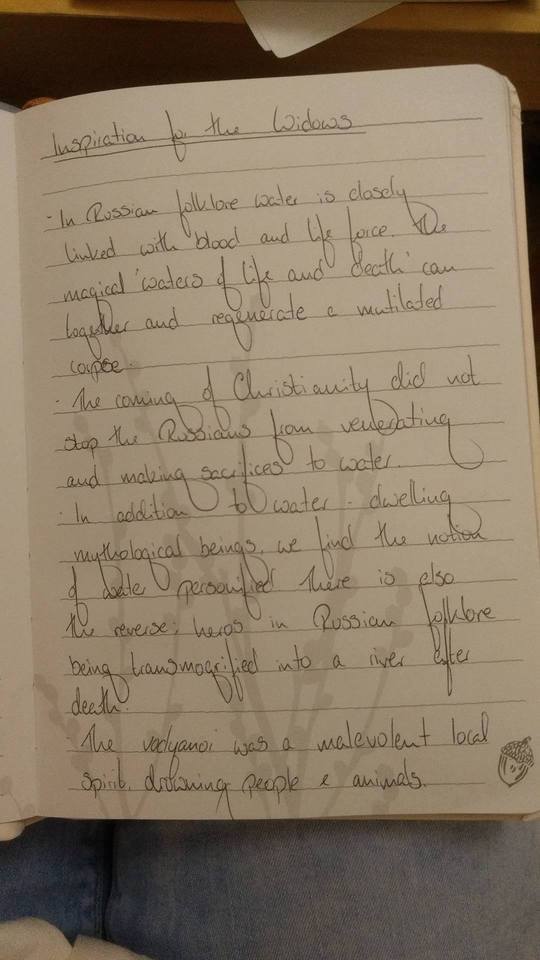 Inspiration for the Widows
· In Russian folklore water is closely
linked with blood and life force. The
magical 'waters of life and death' can
together and regenerate a mutilated
corpse.
· The coming of Christianity did not
stop the Russians from venerating
and making sacrifices to water.
· In addition to water-dwelling
mythological beings, we find the notion
of water personified. There is also
the reverse; heros in Russian folklore
being transmogrified into a river after
death.
· The vodyanoi was a malevolent local
spirit, drowning people & animals.